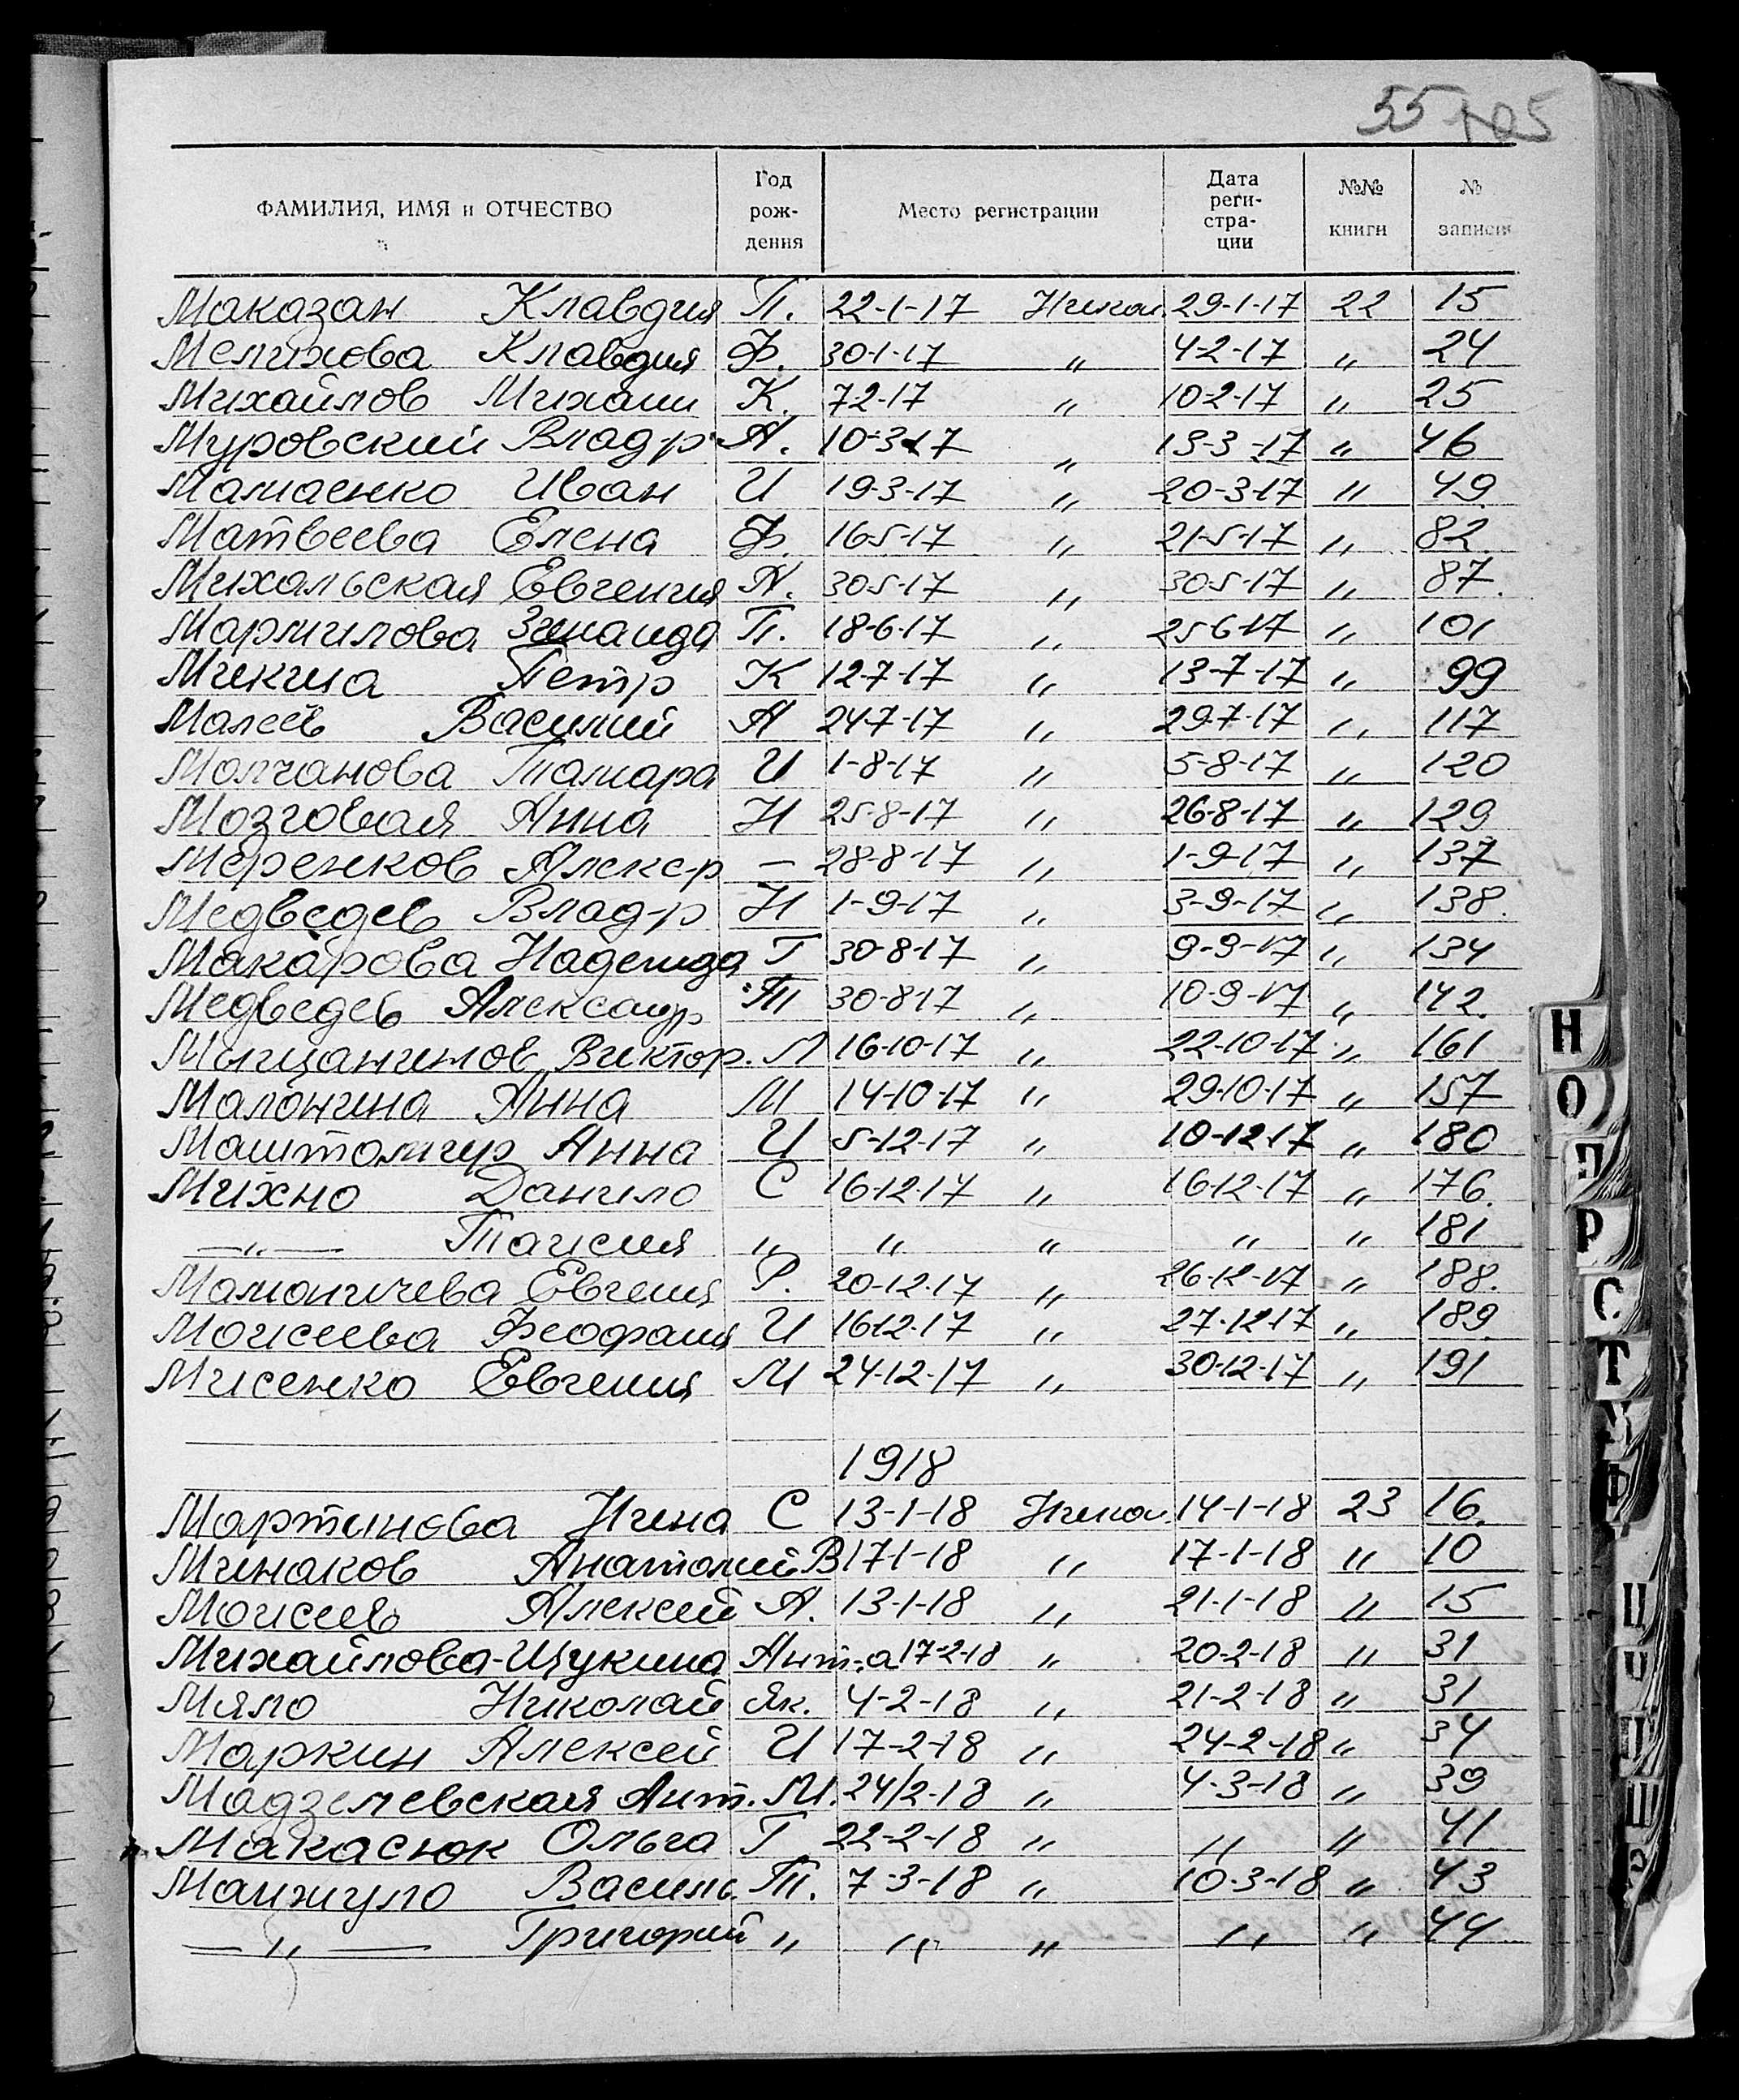 55 105
ФАМИЛИЯ, ИМЯ и ОТЧЕСТВО Год рож- дения Место регистрации Дата реги- стра- ции №№ книги № записи
Маказан Клавдия П. 22-1-17 Никол. 29-1-17 22 15
Мелихова Клавдия Ф. 30-1-17 " 4-2-17 " 24
Михайлов Михаил К. 7-2-17 " 10-2-17 " 25
Муровский Влад-р А. 10-3-17 " 13-3-17 " 46
Мамаенко Иван И 19-3-17 " 20-3-17 " 49
Матвеева Елена Ф. 16-5-17 " 21-5-17 " 82
Михальская Евгения А. 30-5-17 " 30-5-17 " 87.
Мармилова Зинаида П. 18-6-17 " 25-6-17 " 101
Микита Петр К 12-7-17 " 13-7-17 " 99
Малеев Василий А 24-7-17 " 29-7-17 " 117
Молчанова Тамара И 1-8-17 " 5-8-17 " 120
Мозговая Анна Н 25-8-17 " 26-8-17 " 129
Меренков Алекс-р — 28-8-17 " 1-9-17 " 137
Медведев Влад-р Н 1-9-17 " 3-9-17 " 138.
Макарова Надежда Г 30-8-17 " 9-9-17 " 134
Медведев Александр Т 30-8-17 " 10-9-17 " 142.
Виктор. Л 16-10-17 " 22-10-17 " 161
Малонина Анна М 14-10-17 " 29-10-17 " 157
Маштомчур Анна И 5-12-17 " 10-12-17 " 180
Михно Данило С 16-12-17 " 16-12-17 " 176.
—"— Таисия " " " " " 181
Мамоничева Евгения Р. 20-12-17 " 26-12-17 " 188.
Моисеева Феофания И 16-12-17 " 27-12-17 " 189
Мисенко Евгения М 24-12-17 " 30-12-17 " 191
1918
Мартинова Нина С 13-1-18 Никол. 14-1-18 23 16.
Минаков Анатолий В 17-1-18 " 17-1-18 " 10
Моисеев Алексей А. 13-1-18 " 21-1-18 " 15
Михайлова-Щукина Ант-а 17-2-18 " 20-2-18 " 31
Мяло Николай Як. 4-2-18 " 21-2-18 " 31
Маркин Алексей И 17-2-18 " 24-2-18 " 34
Мадзелевская Ант. М. 24/2-18 " 4-3-18 " 39
Макасюк Ольга Г 22-2-18 " " " 41
Манжуло Василь. Т. 7-3-18 " 10-3-18 " 43
—"— Григорий " " " " " 44
Н
О
П
Р
С
Т
У
Ф
Ц
Ш